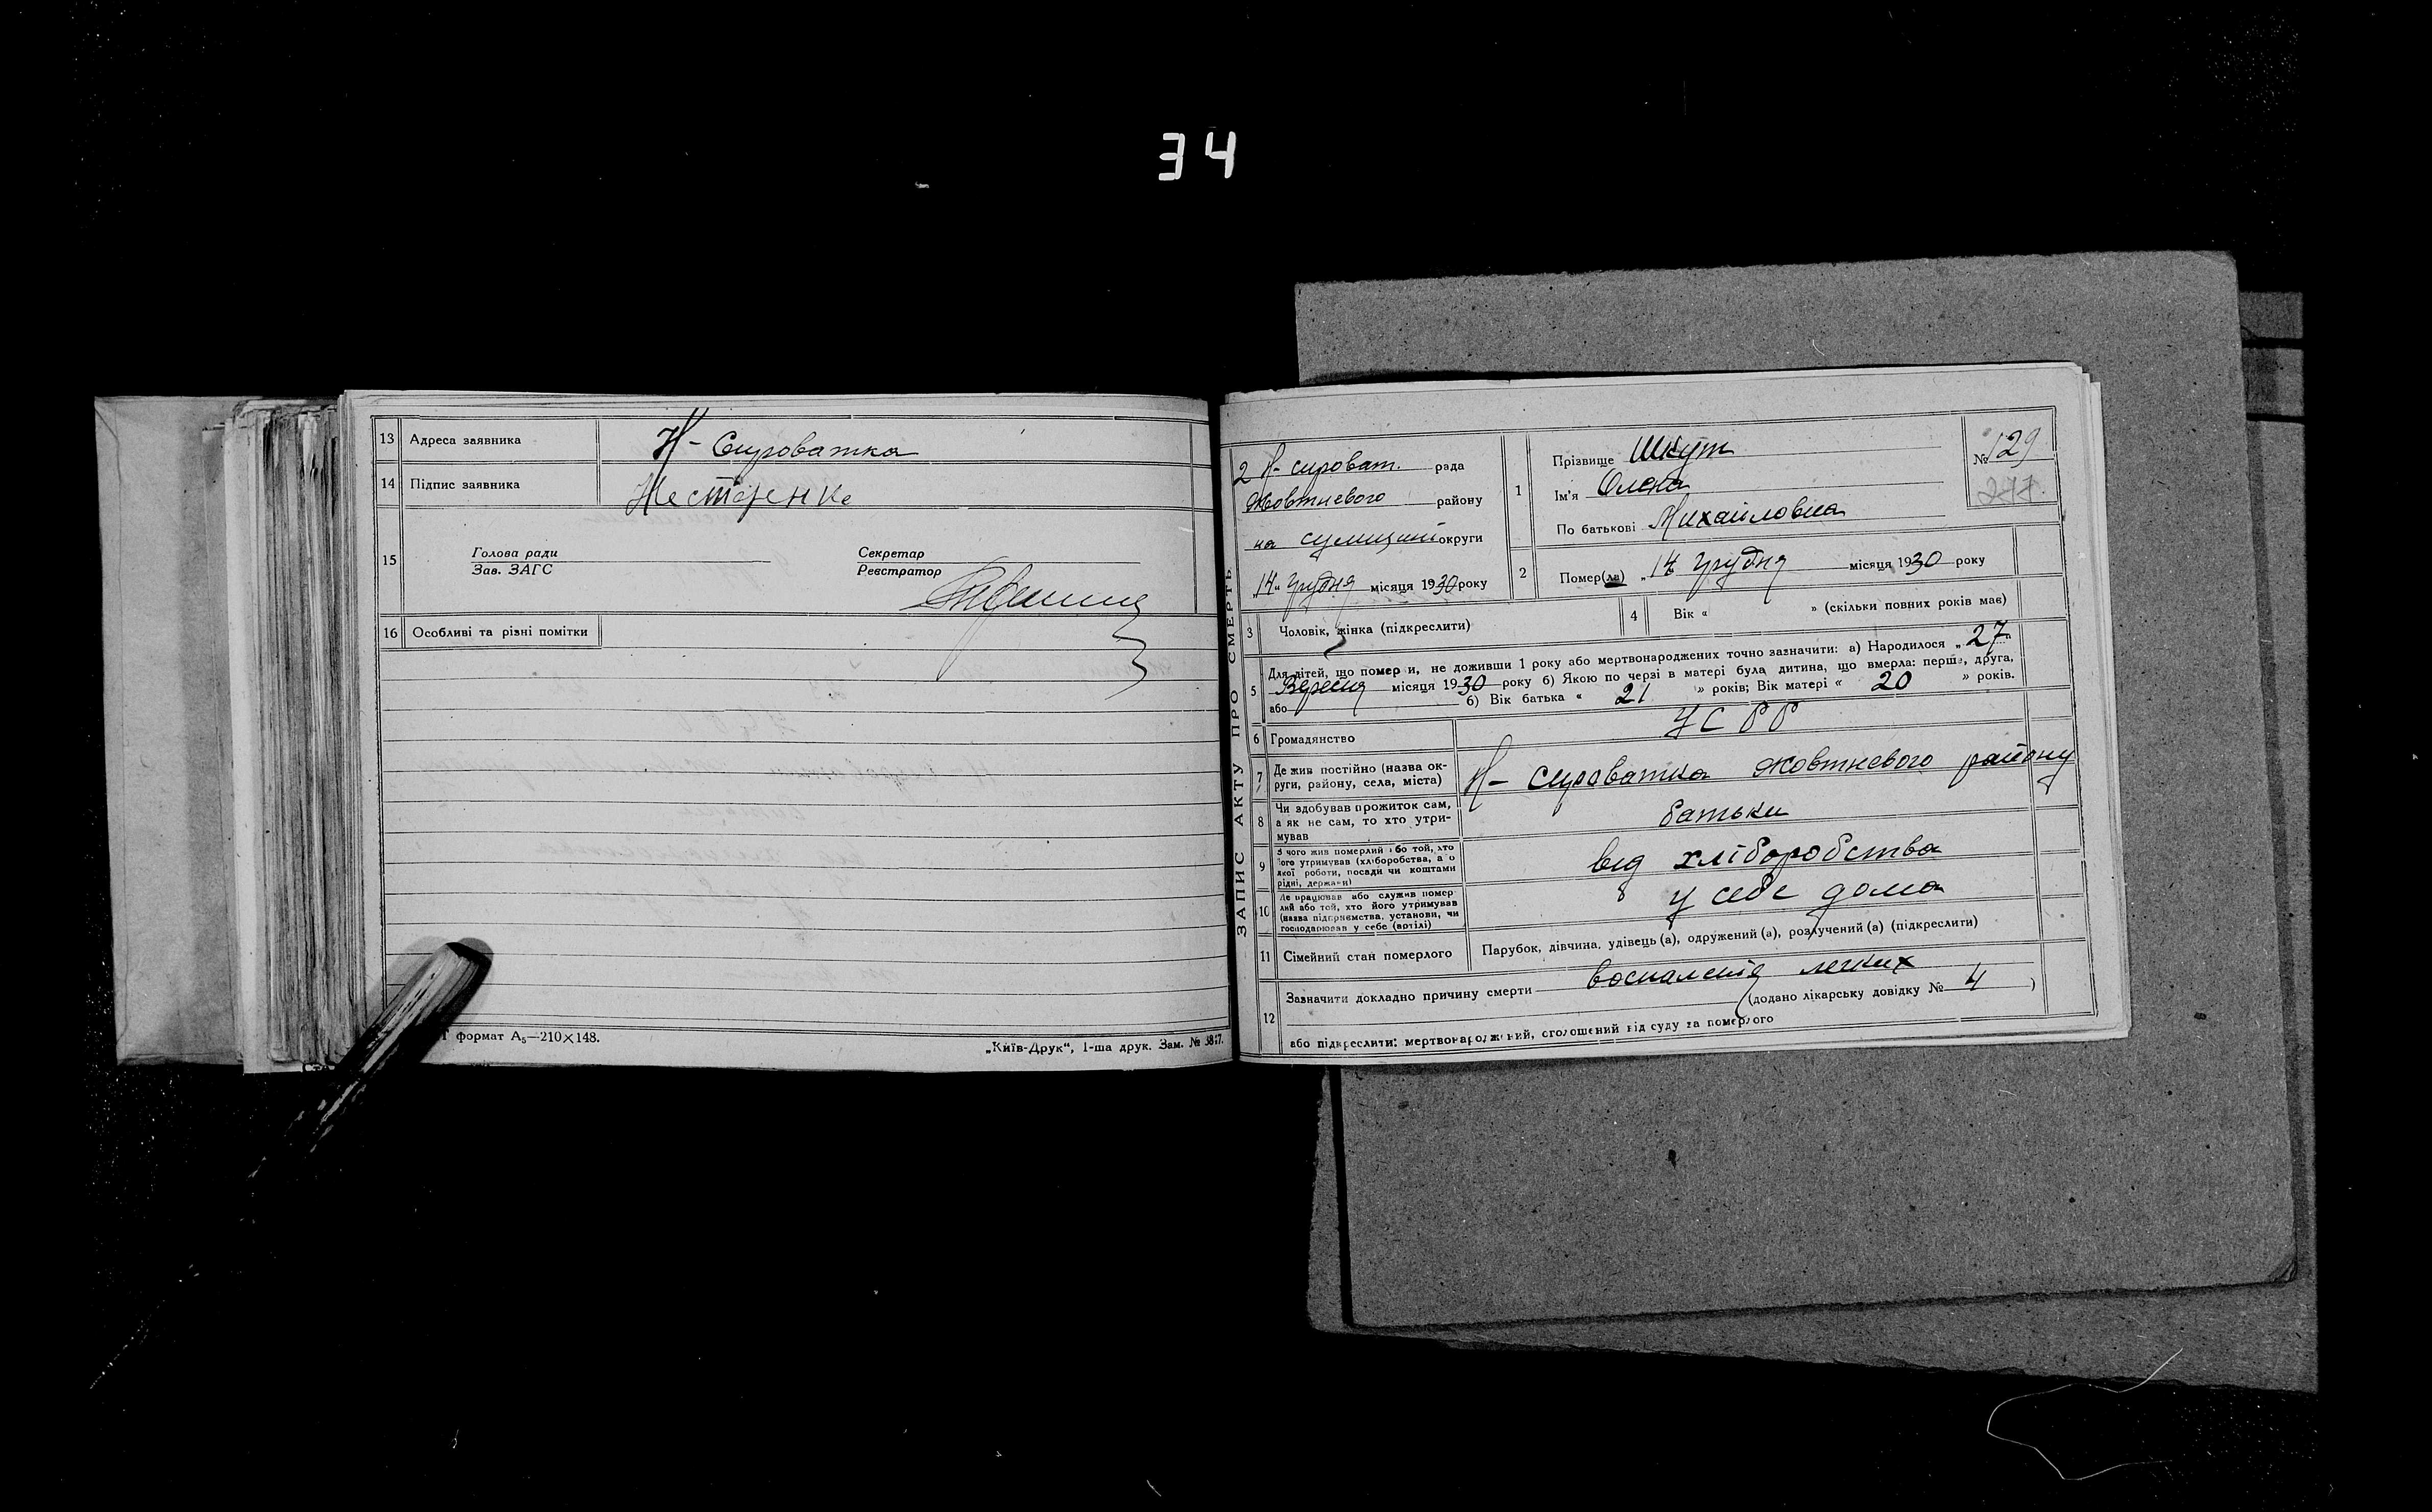 34
13 Адреса заявника Н-Сироватка
14 Підпис заявника Нестеренко
15 Голова ради Секретар
Зав. ЗАГС Реєстратор
16 Особливі та різні помітки
формат А5—210×148.
„Київ-Друк“, 1-ша друк. Зам. №
ЗАПИС АКТУ ПРО СМЕРТЬ
2 Н-сироват. рада
Жовтневого району
на сумщині округи
„14“ грудня місяця 1930 року
1 Прізвище Шкут
Ім'я Олена
По батькові Михайловна
№ 129
277.
2 Помер(ла) „14 грудня місяця 1930 року
3 Чоловік, жінка (підкреслити)
4 Вік « » (скільки повних років має)
5 Для дітей, що померли, не доживши 1 року або мертвонароджених точно зазначити: а) Народилося „27“
Вересня місяця 1930 року б) Якою по черзі в матері була дитина, що вмерла: перша, друга,
або б) Вік батька « 21 » років; Вік матері « 20 » років.
6 Громадянство УСРР
7 Де жив постійно (назва ок-
руги, району, села, міста) Н-Сироватка Жовтневого району
8 Чи здобував прожиток сам,
а як не сам, то хто утри-
мував батьки
9 З чого жив померлий або той, хто
його утримував (хліборобства, а о
якої роботи, посади чи коштами
рідні, держави) від хліборобства
10 Де працював або служив помер-
лий або той, хто його утримував
(назва підприємства, установи, чи
господарював у себе (артілі) у себе дома
11 Сімейний стан померлого Парубок, дівчина, удівець (а), одружений (а), розлучений (а) (підкреслити)
12 Зазначити докладно причину смерти воспаления легких
(додано лікарську довідку № 4 )
або підкреслити: мертвонароджений, оголошений від суду за померлого